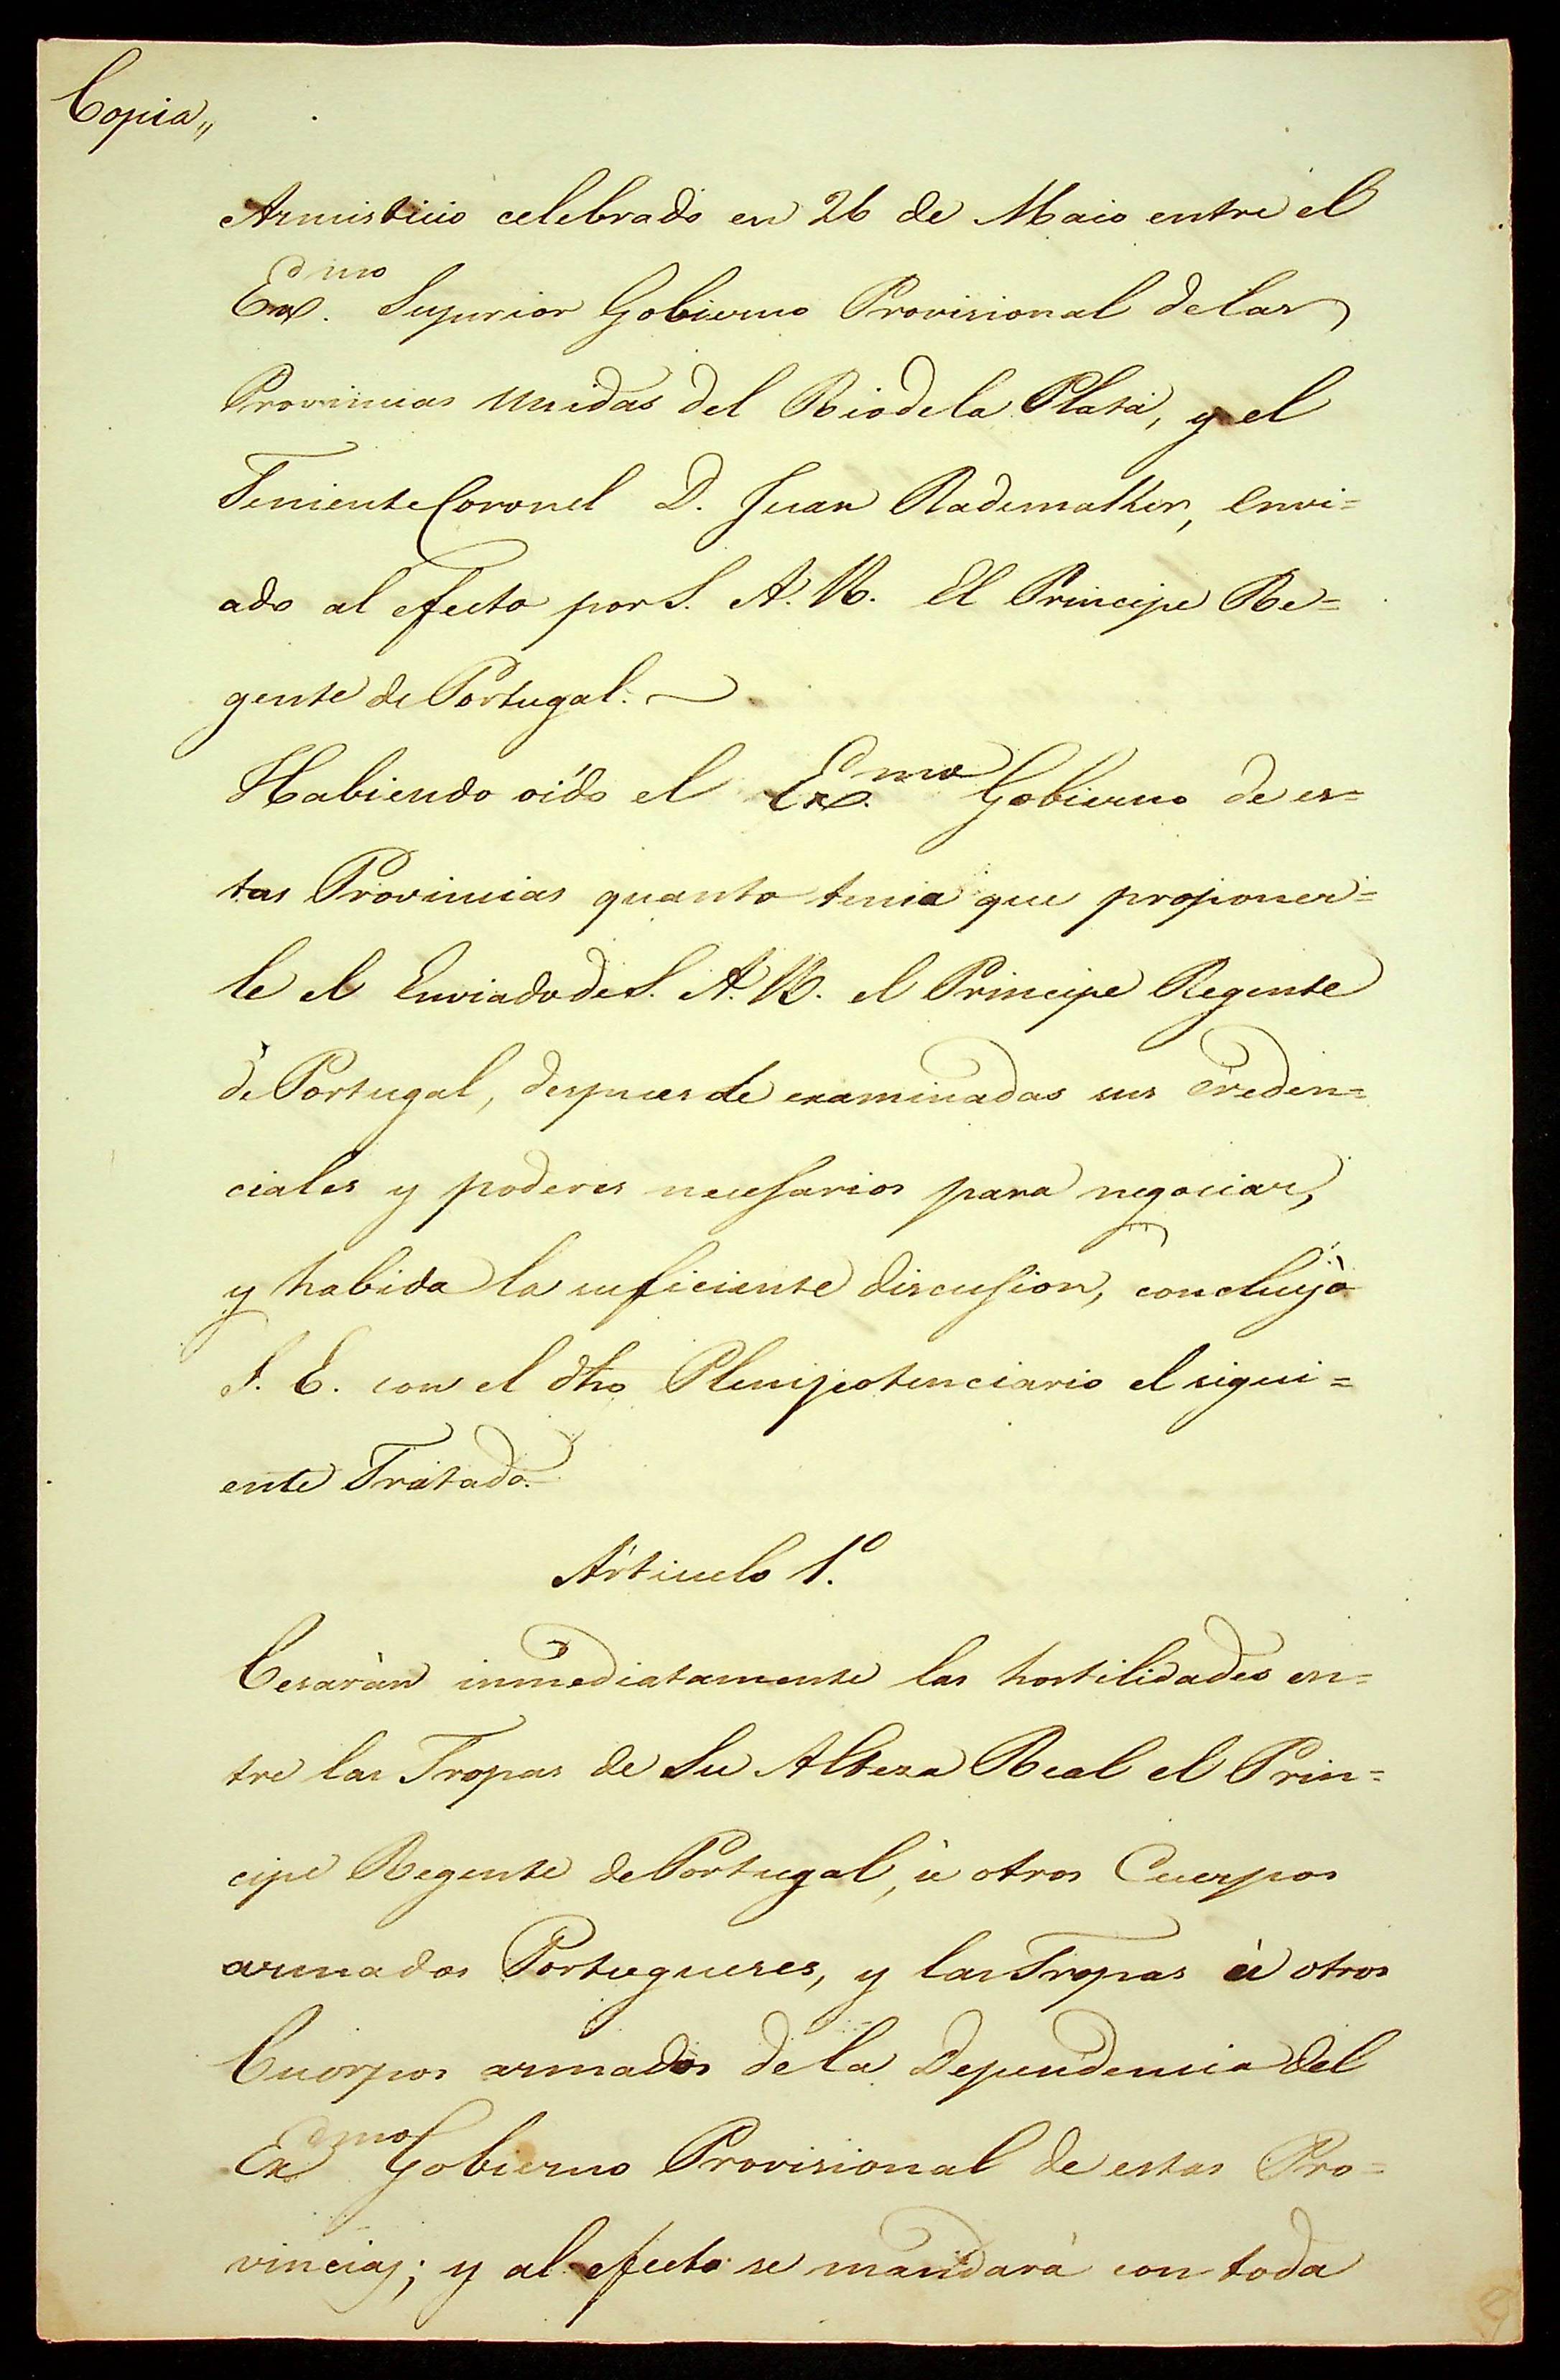 Copia„
Armisticio celebrado en 26 de Maio entre el
Exmo. Superior Gobierno Provisional de las
Provincias Unidas del Rio de la Plata, y el
Teniente Coronel D. Juan Rademaker, envi=
ado al efecto por S. A. R. El Principe Re=
gente de Portugal.
Habiendo oído el Exmo. Gobierno de es=
tas Provincias quanto tenia que proponer=
le el Enviado de S. A. R. el Principe Regente
de Portugal, despues de examinadas sus creden=
ciales y poderes necesarios para negociar,
y habida la suficiente discusion, concluyò
S. E. con el dho Plenipotenciario el sigui=
ente Tratado.
Artículo 1.º
Cesaràn inmediatamente las hostilidades en=
tre las Tropas de Su Alteza Real el Prin=
cipe Regente de Portugal, ù otros Cuerpos
armados Portugueses, y las Tropas ù otros
Cuerpos armados de la Dependencia del
Exmo Gobierno Provisional de estas Pro=
vincias; y al efecto se mandarà con toda